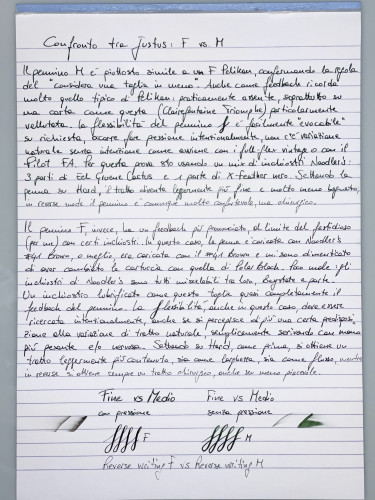 Confronto tra Justus: F vs M
Il pennino M è piuttosto simile a un F Pelikan, confermando la regola
del "considera una taglia in meno". Anche come feedback ricorda
molto quello tipico di Pelikan: praticamente assente, soprattutto su
una carta come questa (Clairefontaine Triomphe) particolarmente
vellutata. La flessibilità del pennino è facilmente "evocabile" su
richiesta, ocorre fare pressione intenzionalmente, non c'è variazione
naturale senza intenzione come avviene con i full-flex vintage o con il
Pilot FA. Per questa prova sto usando un mix di inchiostri Noodler's:
3 parti di Eel Gruene Cactus e 1 parte di X-Feather nero. Settando la
penna su Hard, il tratto diventa leggermente più fine e molto meno bagnato,
in reverse mode il pennino è comunque molto confortevole, ma chirurgico.
Il pennino F, invece, ha un feedback più pronunciato, al limite del fastidioso
(per me) con certi inchiostri. In questo caso, la penna è caricata con Noodler's
#41 Brown, o meglio, era caricata con il #41 Brown e mi sono dimenticato
di aver cambiato la cartuccia con quella di Polar Black. Poco male: gli
inchiostri di Noodler's sono tutti miscelabili tra loro, Baystate a parte.
Un inchiostro lubrificato come questo taglia quasi completamente il
feedback del pennino. La flessibilità, anche in questo caso, deve essere
ricercata intenzionalmente, anche se si percepisce di più una certa predispo-
zione alla variazione di tratto naturale, semplicemente scrivendo con mano
più pesante e/o nervosa. Settando su Hard, come prima, si ottiene un
tratto leggermente più contenuto, sia come larghezza, sia come flusso, mentre
in reverse si ottiene sempre un tratto chirurgico, anche se meno piacevole.
Fine vs Medio Fine vs Medio
con pressione senza pressione
F M
Reverse writing F vs Reverse writing M